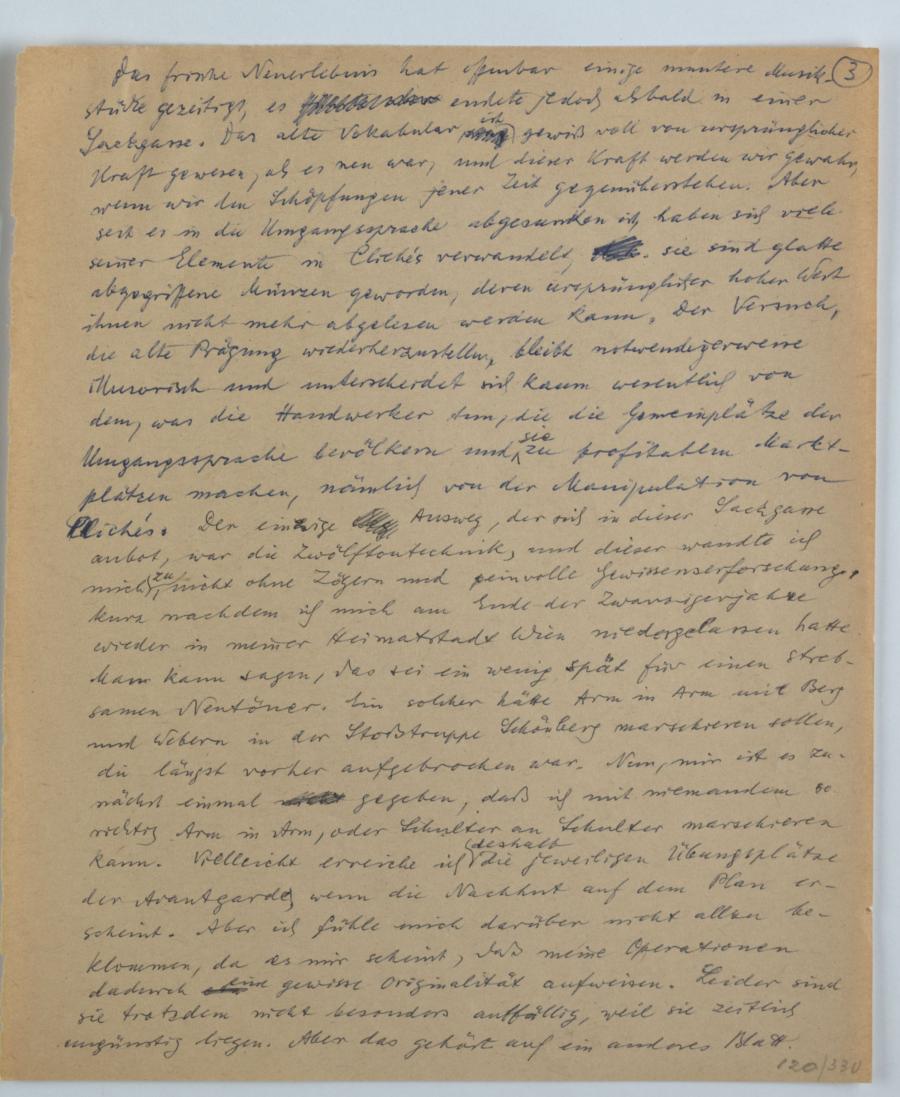 Das frische Neuerlebnis hat offenbar einige muntere Musik- 3
stücke gezeitigt, es endete jedoch alsbald in einer
Sackgasse. Das alte Vokabular ist gewiß voll von ursprünglicher
Kraft gewesen, als es neu war, und dieser Kraft werden wir gewahr,
wenn wir den Schöpfungen jener Zeit gegenüberstehen. Aber
seit es in die Umgangssprache abgesunken ist, haben sich viele
seiner Elemente in Clichés verwandelt, sie sind glatte
abgegriffene Münzen geworden, deren ursprünglicher hoher Wert
ihnen nicht mehr abgelesen werden kann. Der Versuch,
die alte Prägung wiederherzustellen, bleibt notwendigerweise
illusorisch und unterscheidet sich kaum wesentlich von
dem, was die Handwerker tun, die die Gemeinplätze der
Umgangssprache bevölkern und sie zu profitablen Markt-
plätzen machen, nämlich von der Manipulation von
Clichés. Der einzige Ausweg, der sich in dieser Sackgasse
anbot, war die Zwölftontechnik, und dieser wandte ich
mich zu, nicht ohne Zögern und peinvolle Gewissenserforschung,
kurz nachdem ich mich am Ende der Zwanzigerjahre
wieder in meiner Heimatstadt Wien niedergelassen hatte
Man kann sagen, das sei ein wenig spät für einen streb-
samen Neutöner. Ein solcher hätte Arm in Arm mit Berg
und Webern in der Stoßtruppe Schönberg marschieren sollen,
die längst vorher aufgebrochen war. Nun, mir ist es zu-
nächst einmal nicht gegeben, daß ich mit niemandem so
richtig Arm in Arm, oder Schulter an Schulter marschieren
kann. Vielleicht erreiche ich deshalb die jeweiligen Übungsplätze
der Avantgarde, wenn die Nachhut auf dem Plan er-
scheint. Aber ich fühle mich darüber nicht allzu be-
klommen, da es mir scheint, daß meine Operationen
dadurch eine gewisse Originalität aufweisen. Leider sind
sie trotzdem nicht besonders auffällig, weil sie zeitlich
ungünstig liegen. Aber das gehört auf ein anderes Blatt.
120/330